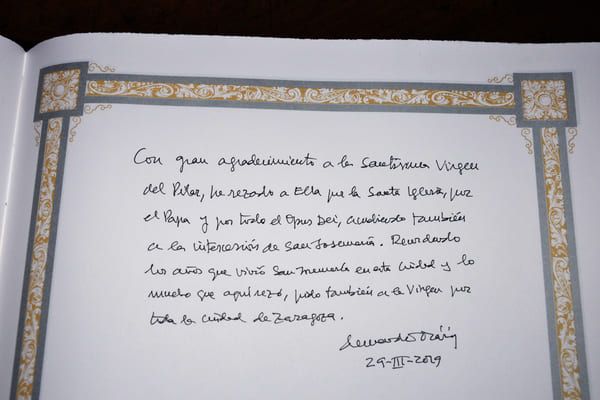 Con gran agradecimiento a la Santísima Virgen
del Pilar, he rezado a Ella por la Santa Iglesia, por
el Papa y por todo el Opus Dei, acudiendo también
a la intercesión de San Josemaría. Recordando
los años que vivió San Josemaría en esta ciudad y lo
mucho que aquí rezó, pido también a la Virgen por
toda la ciudad de Zaragoza.
Fernando Ocáriz
29-III-2019